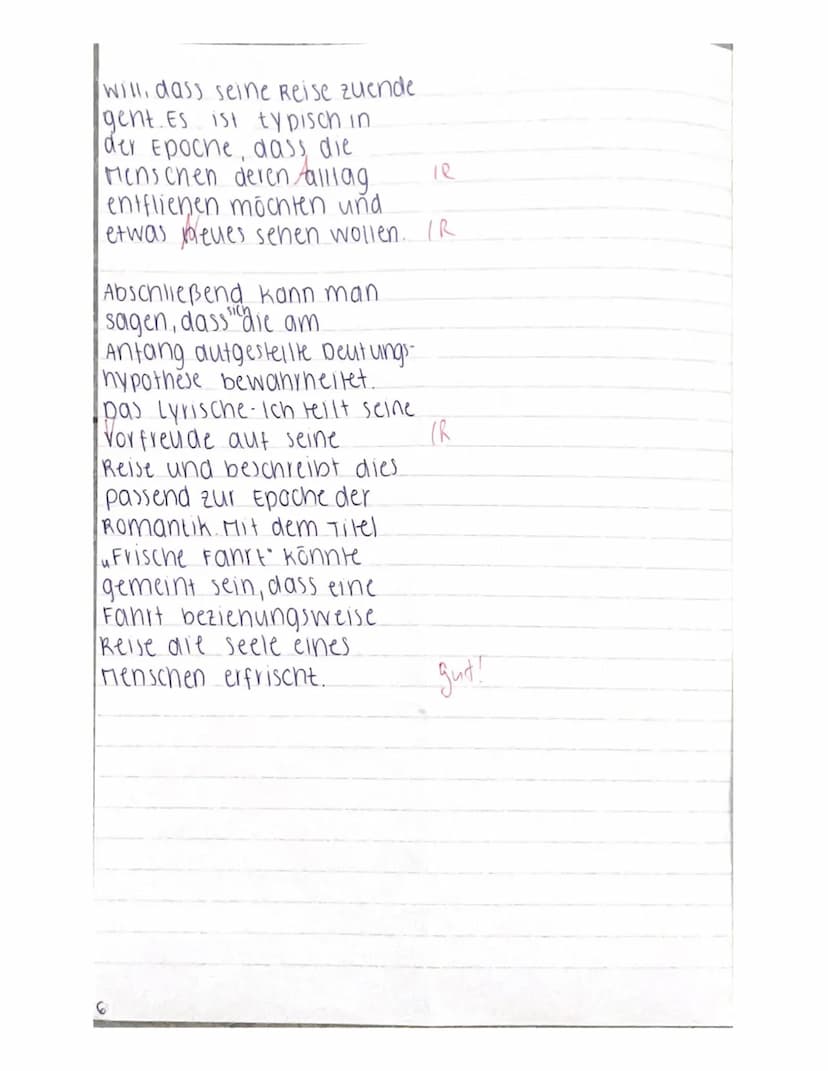 will, dass seine Reise zuende
geht. Es ist typisch in
der Epoche, dass die
Menschen deren Alltag IR
entfliehen möchten und
etwas Neues sehen wollen. IR
Abschließend kann man
sagen, dass sich die am
Anfang aufgestellte Deutungs-
hypothese bewahrheitet.
Das Lyrische-Ich teilt seine
Vorfreude auf seine IR
Reise und beschreibt dies
passend zur Epoche der
Romantik. Mit dem Titel
„Frische Fahrt“ könnte
gemeint sein, dass eine
Fahrt beziehungsweise
Reise die Seele eines
Menschen erfrischt. gut!
6